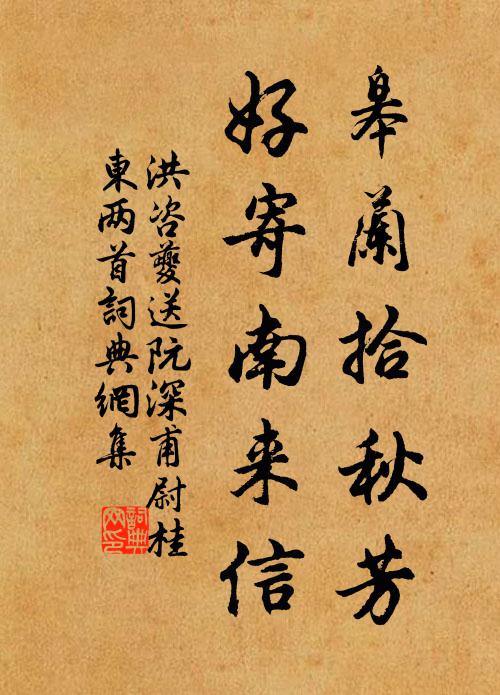 皋蘭拾秋芳
好寄南来信
洪咨夔送阮深甫尉桂
東两首詞典網集